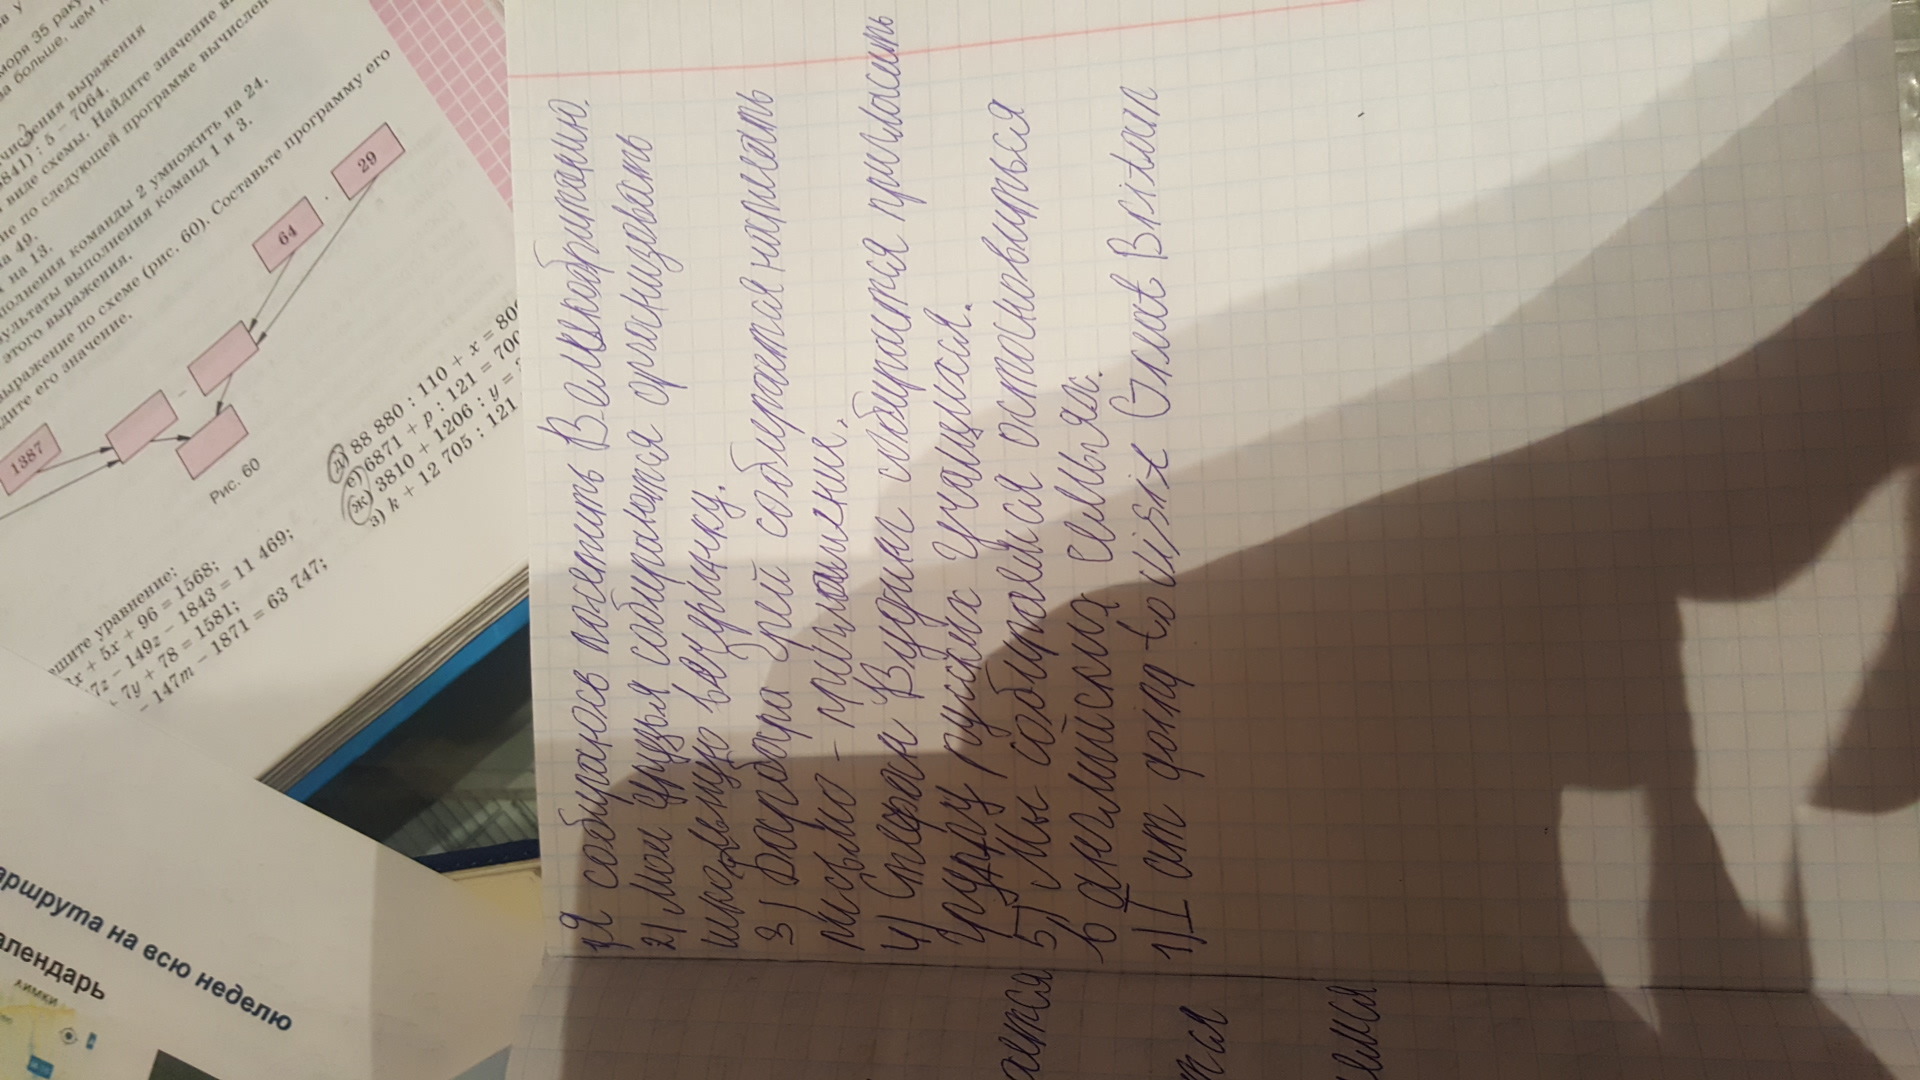 моря 35 раку
а больше, чем
чения выражения
841) : 5 – 7064.
виде схемы. Найдите значение
ие по следующей программе вычислен
на 49.
на 13.
полнения команды 2 умножить на 24.
зультаты выполнения команд 1 и 3.
этого выражения.
выражение по схеме (рис. 60). Составьте программу его
дите его значение.
1387
–
64
·
29
Рис. 60
ешите уравнение:
x + 5x + 96 = 1568;
7z – 149z – 1843 = 11 469;
+ 7y + 78 = 1581;
– 147m – 1871 = 63 747;
д) 88 880 : 110 + x = 80
е) 6871 + p : 121 = 700
ж) 3810 + 1206 : y =
з) k + 12 705 : 121
аршрута на всю неделю
алендарь
ХИМКИ
1) Я собираюсь посетить Великобританию.
2) Мои друзья собираются организовать
школьную вечеринку.
3) Барбара Грей собирается написать
письмо - приглашение.
4) Стефан Вудин собирается пригласить
группу русских учащихся.
5) Мы собираемся остановиться
в английских семьях.
1) I am going to visit Great Britan
ается
тся
емся